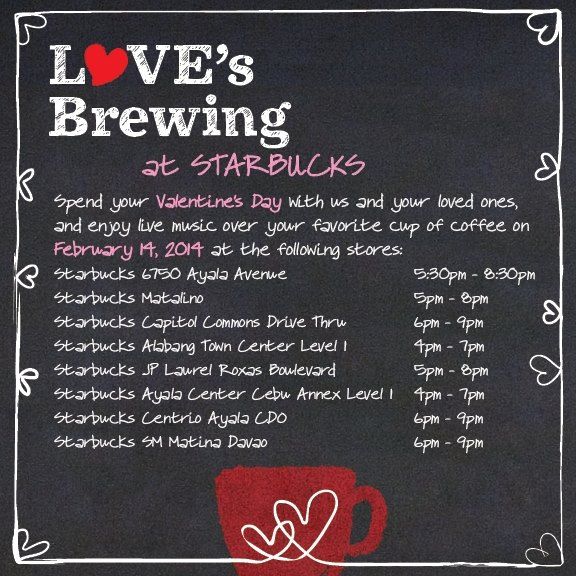 LOVE's
Brewing
at STARBUCKS
Spend your Valentine's Day with us and your loved ones,
and enjoy live music over your favorite cup of coffee on
February 14, 2014 at the following stores:
Starbucks 6750 Ayala Avenue 5:30pm - 8:30pm
Starbucks Matalino 5pm - 8pm
Starbucks Capitol Commons Drive Thru 6pm - 9pm
Starbucks Alabang Town Center Level 1 4pm - 7pm
Starbucks JP Laurel Roxas Boulevard 5pm - 8pm
Starbucks Ayala Center Cebu Annex Level 1 4pm - 7pm
Starbucks Centrio Ayala CDO 6pm - 9pm
Starbucks SM Matina Davao 6pm - 9pm